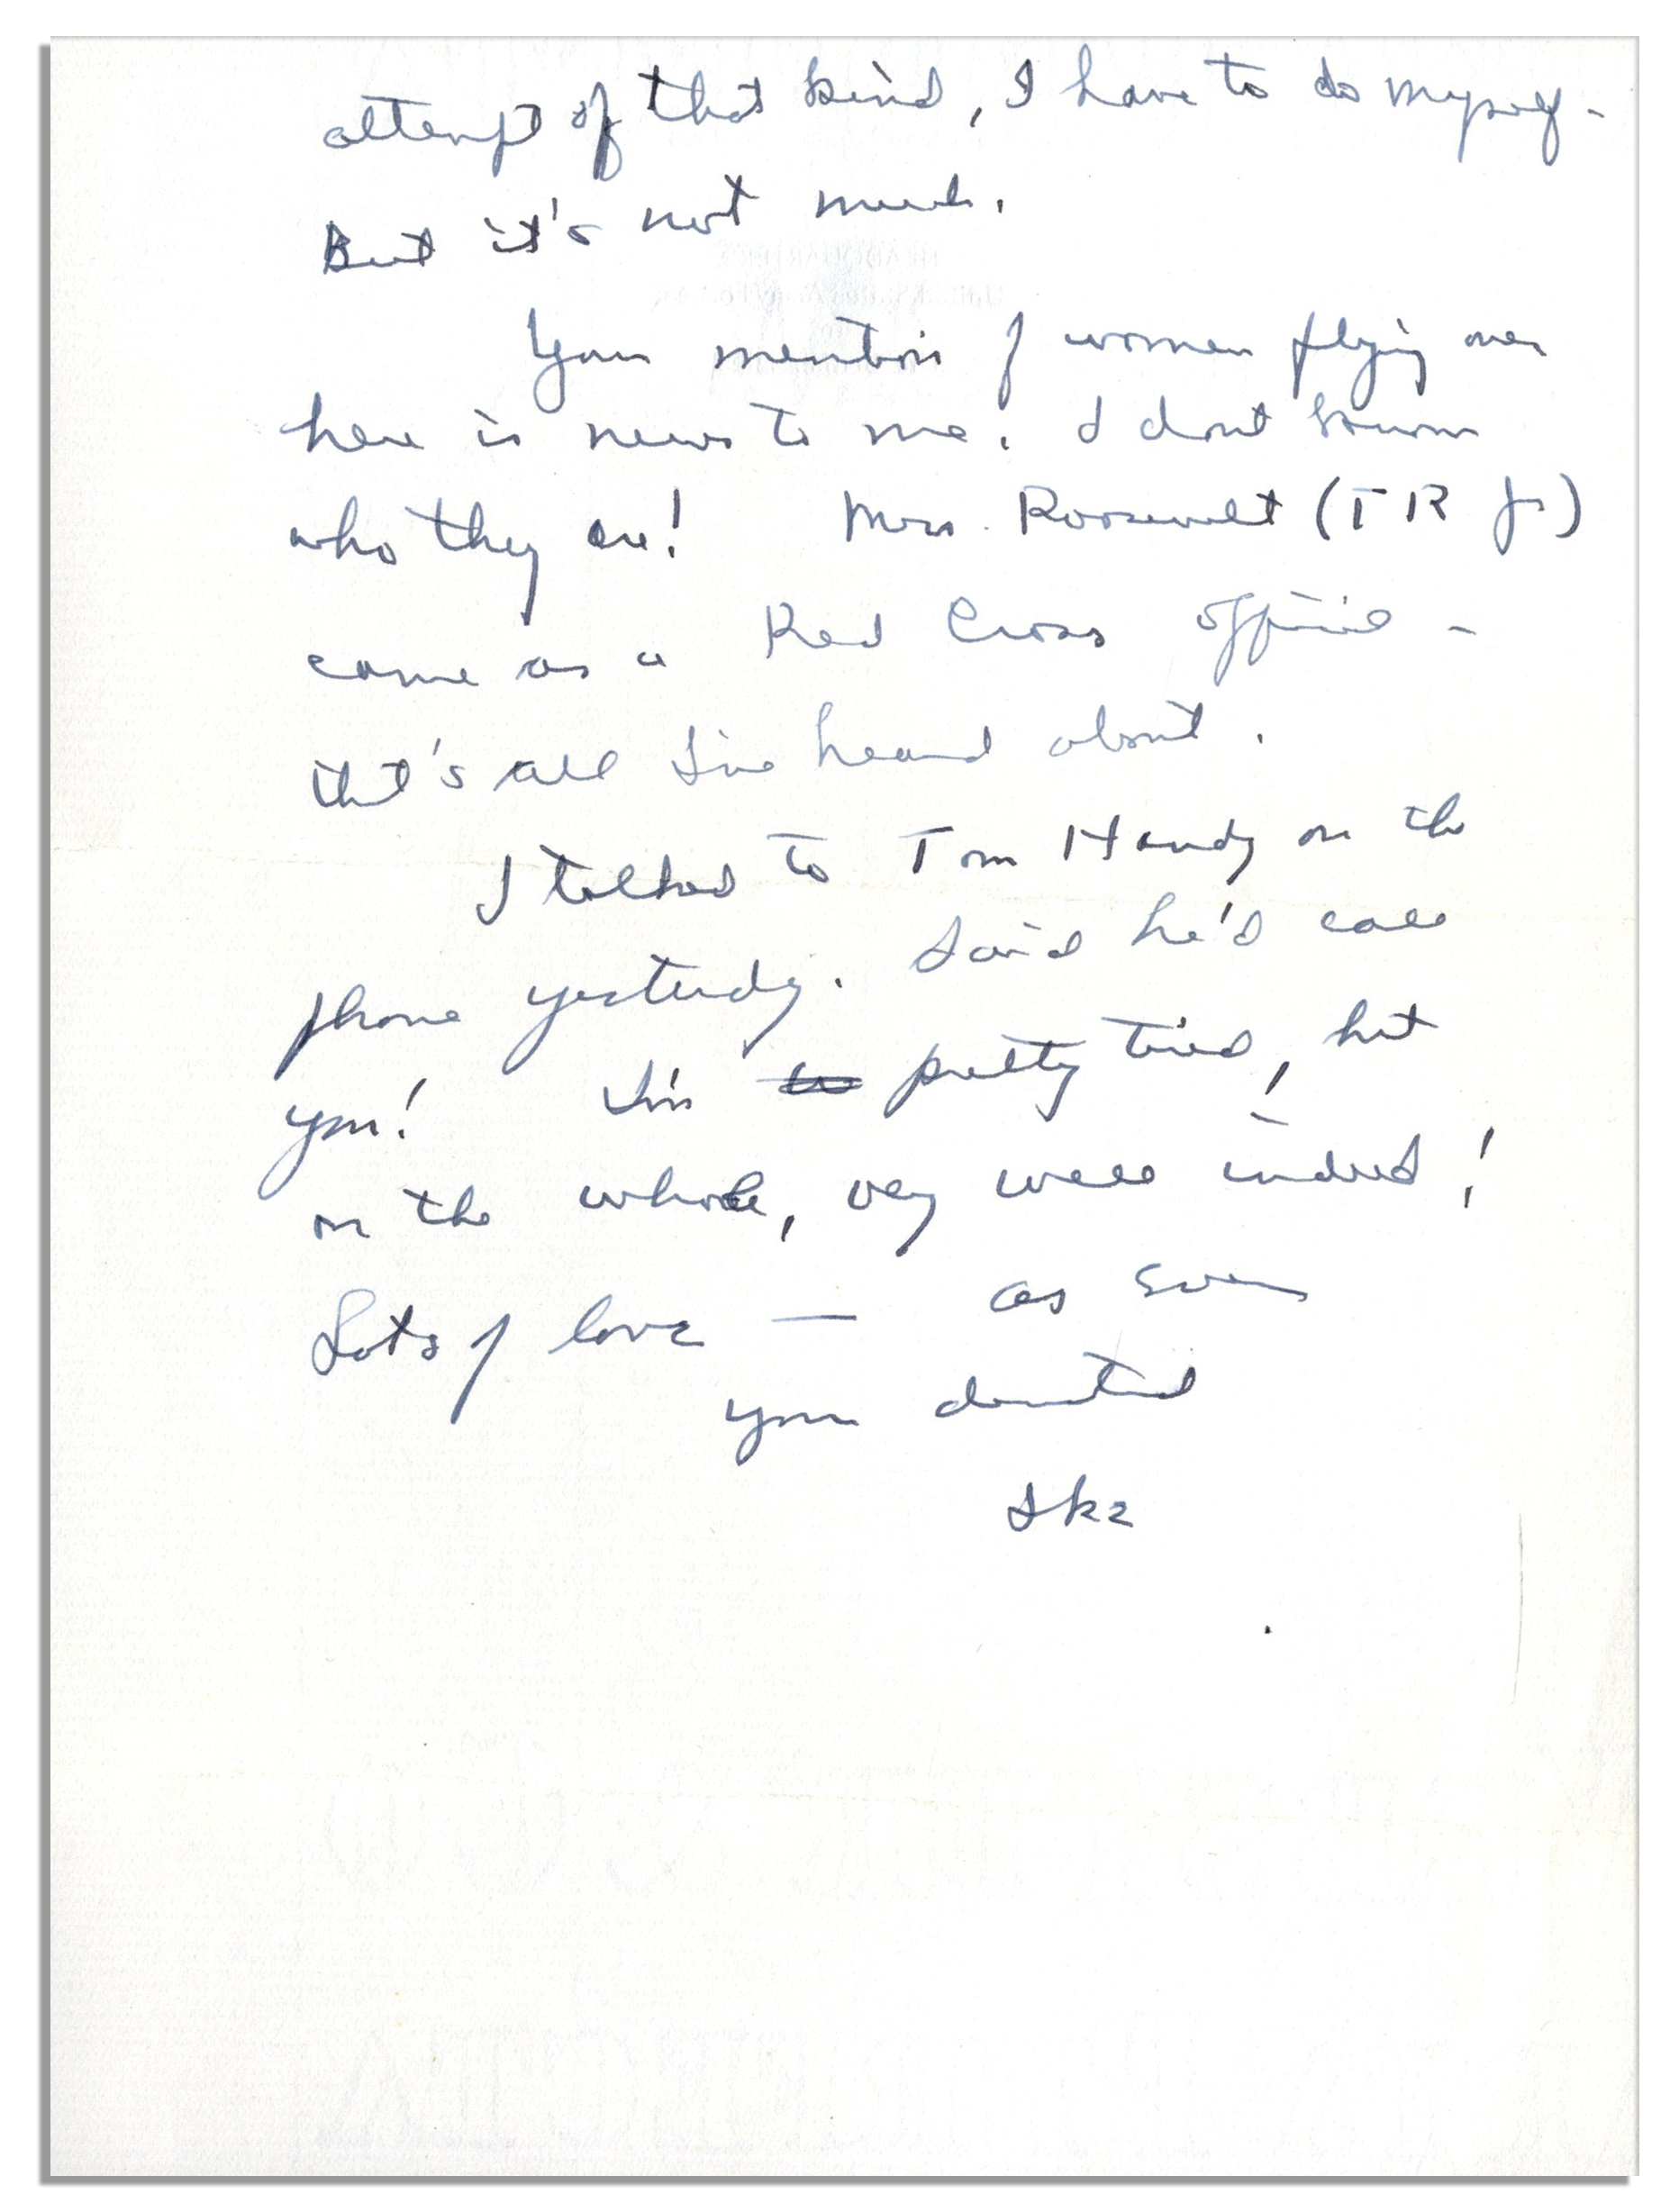 attempt of that kind, I have to do myself -
But it's not much.
Your mention of women flying over
here is news to me. I dont know
who they are! Mrs. Roosevelt (TR Jr)
came as a Red Cross official -
that's all I've heard about.
I talked to Tom Handy on the
phone yesterday. Said he'd call
you! I'm pretty tired, but
on the whole, very well indeed!
Lots of love — as ever
your devoted
Ike
HEADQUARTERS